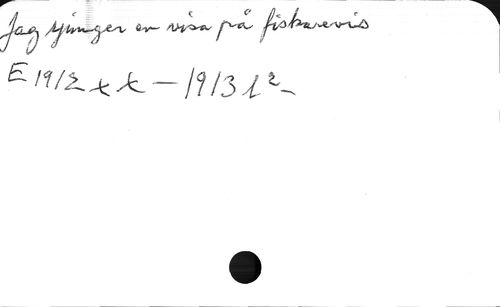 Jag sjunger en visa på fiskarevis
E 1912 x x — 1913 1²-